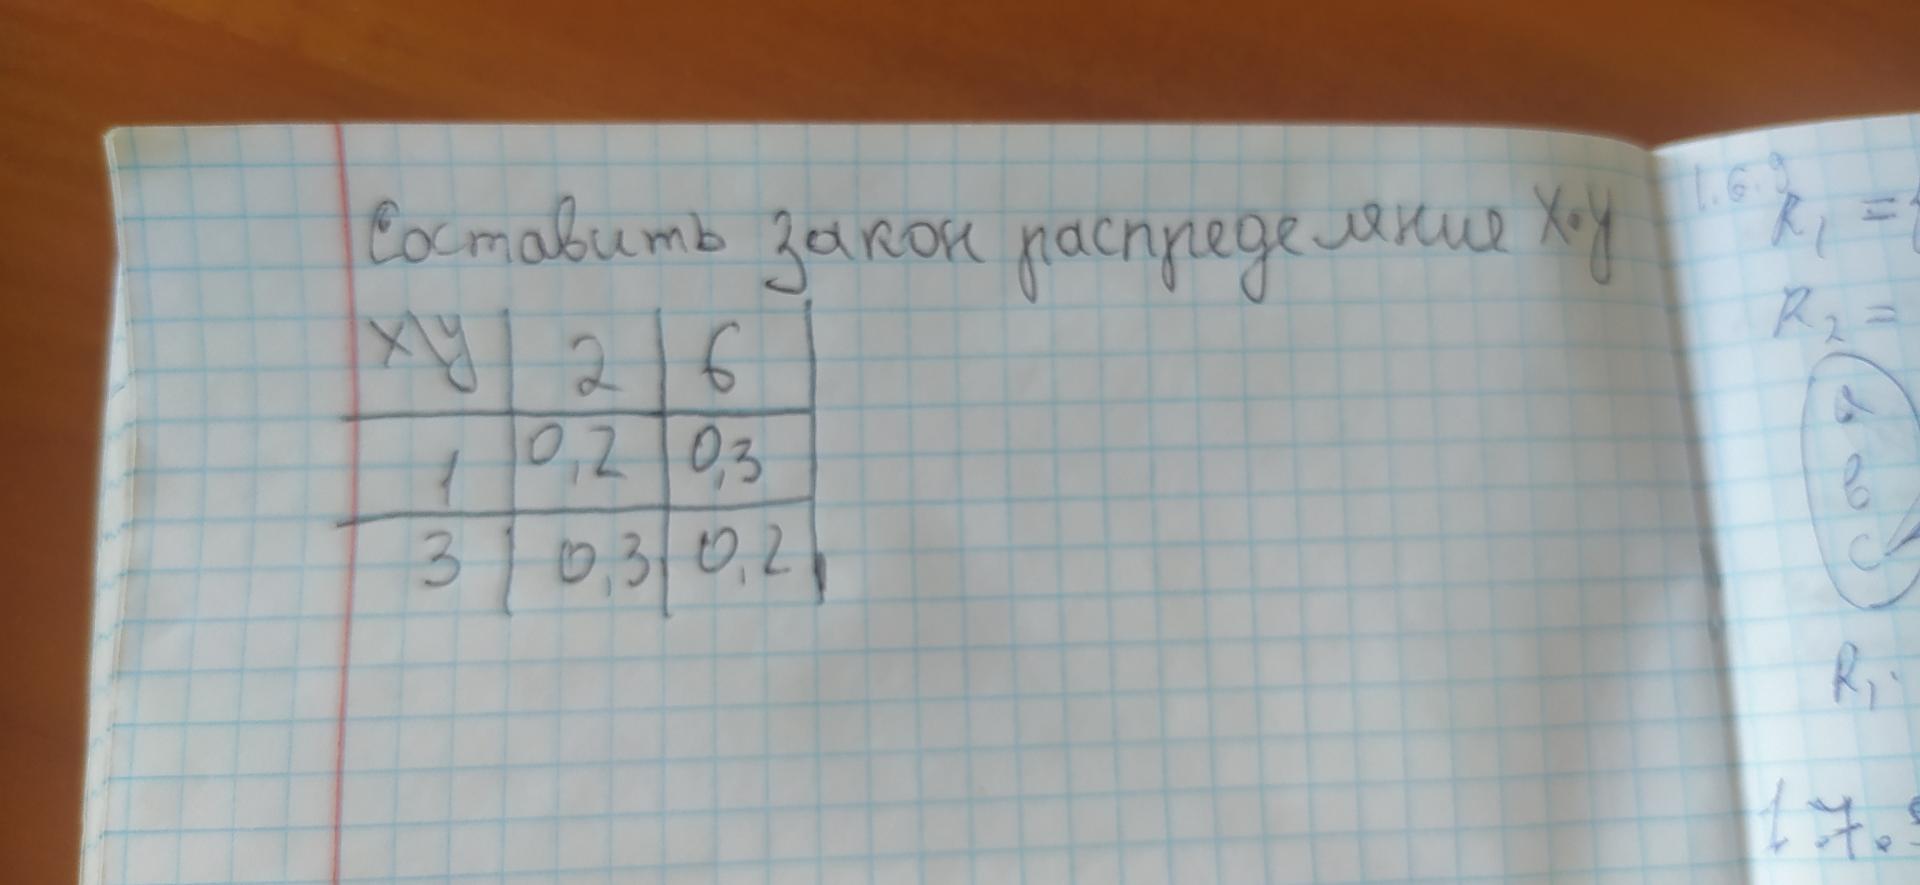 Составить закон распределение X·y
x\y 2 6
1 0,2 0,3
3 0,3 0,2
1.6.9
R₁ =
R₂ =
a
b
c
R₁
1.7.